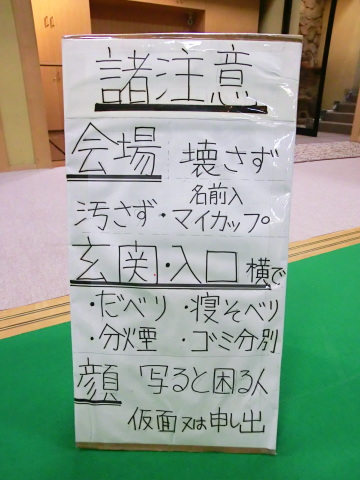 諸注意
会場 壊さず
汚さず・名前入マイカップ
玄関・入口横で
・だべり ・寝そべり
・分煙 ・ゴミ分別
顔 写ると困る人
仮面又は申し出